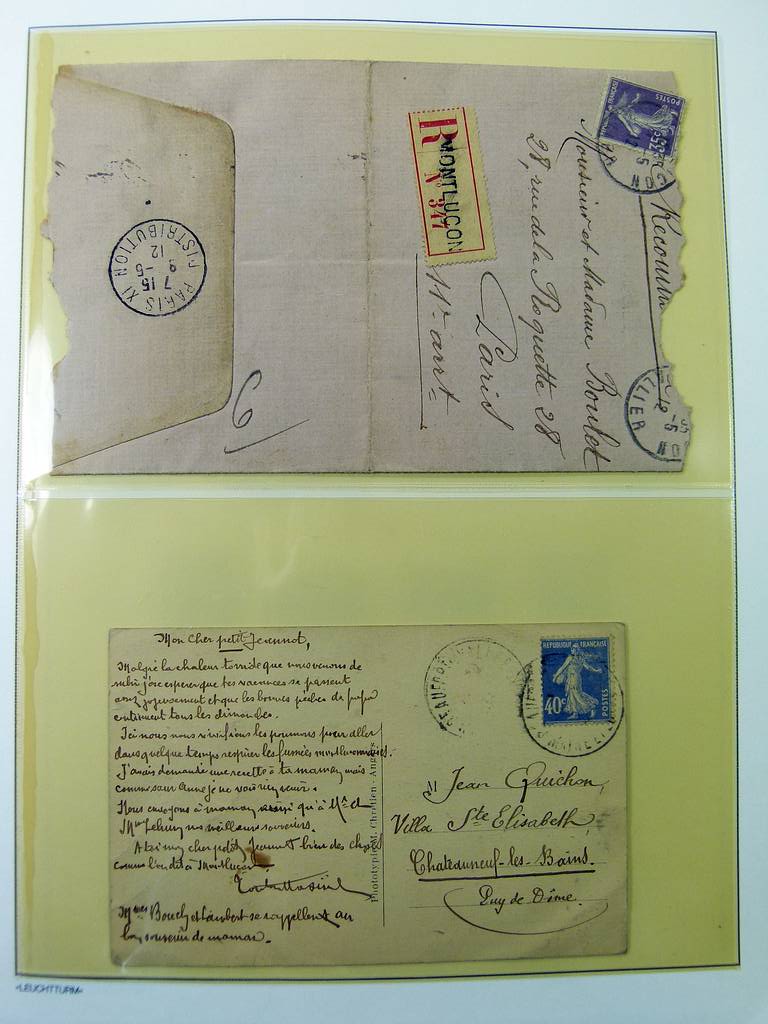 RÉPUBLIQUE FRANÇAISE
POSTES
35c
Monsieur et Madame Boulet
28, rue de la Roquette 28
Paris
XIe arrt
R MONTLUCON
No 347
PARIS XI
7 15
9 -5
12
DISTRIBUTION
Mon cher petit Jeannot,
Malgré la chaleur torride que nous venons de
subir j'ose espérer que tes vacances se passent
joyeusement et que les bonnes pêches de papa
continuent tous les dimanches.
Ici nous nous vivifions les poumons pour aller
dans quelque temps respirer les fumées montluçonnaises.
J'avais demandé une recette à ta maman mais
comme sœur Anne je ne vois rien venir.
Nous envoyons à maman qu'à Mr et
Mme nos meilleurs souvenirs.
mon cher petit Jeannot bien des choses
comme l'on dit à Montluçon
Mmes Bouch et Lambert se rappellent au
bon souvenir de maman.
Phototypie M. Chrétien - Angers
RÉPUBLIQUE FRANÇAISE
40c
POSTES
M Jean Quichon,
Villa Ste Elisabeth
Chateauneuf-les-Bains.
Puy de Dôme.
LEUCHTTURM